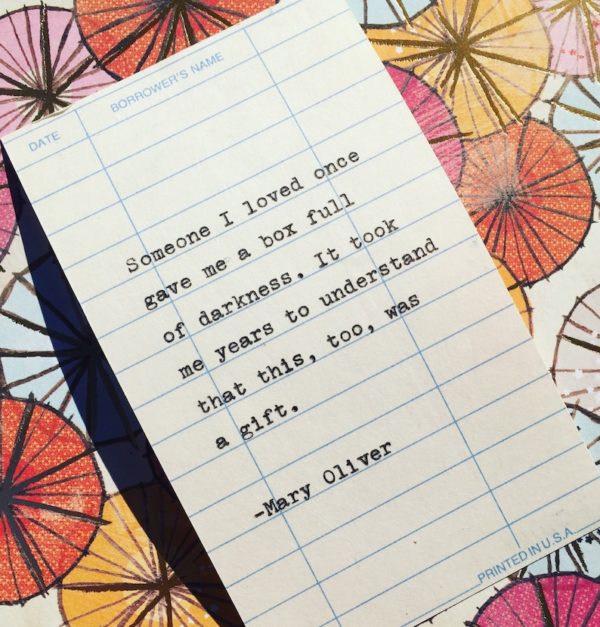 DATE
BORROWER'S NAME
Someone I loved once
gave me a box full
of darkness. It took
me years to understand
that this, too, was
a gift.
-Mary Oliver
PRINTED IN U.S.A.